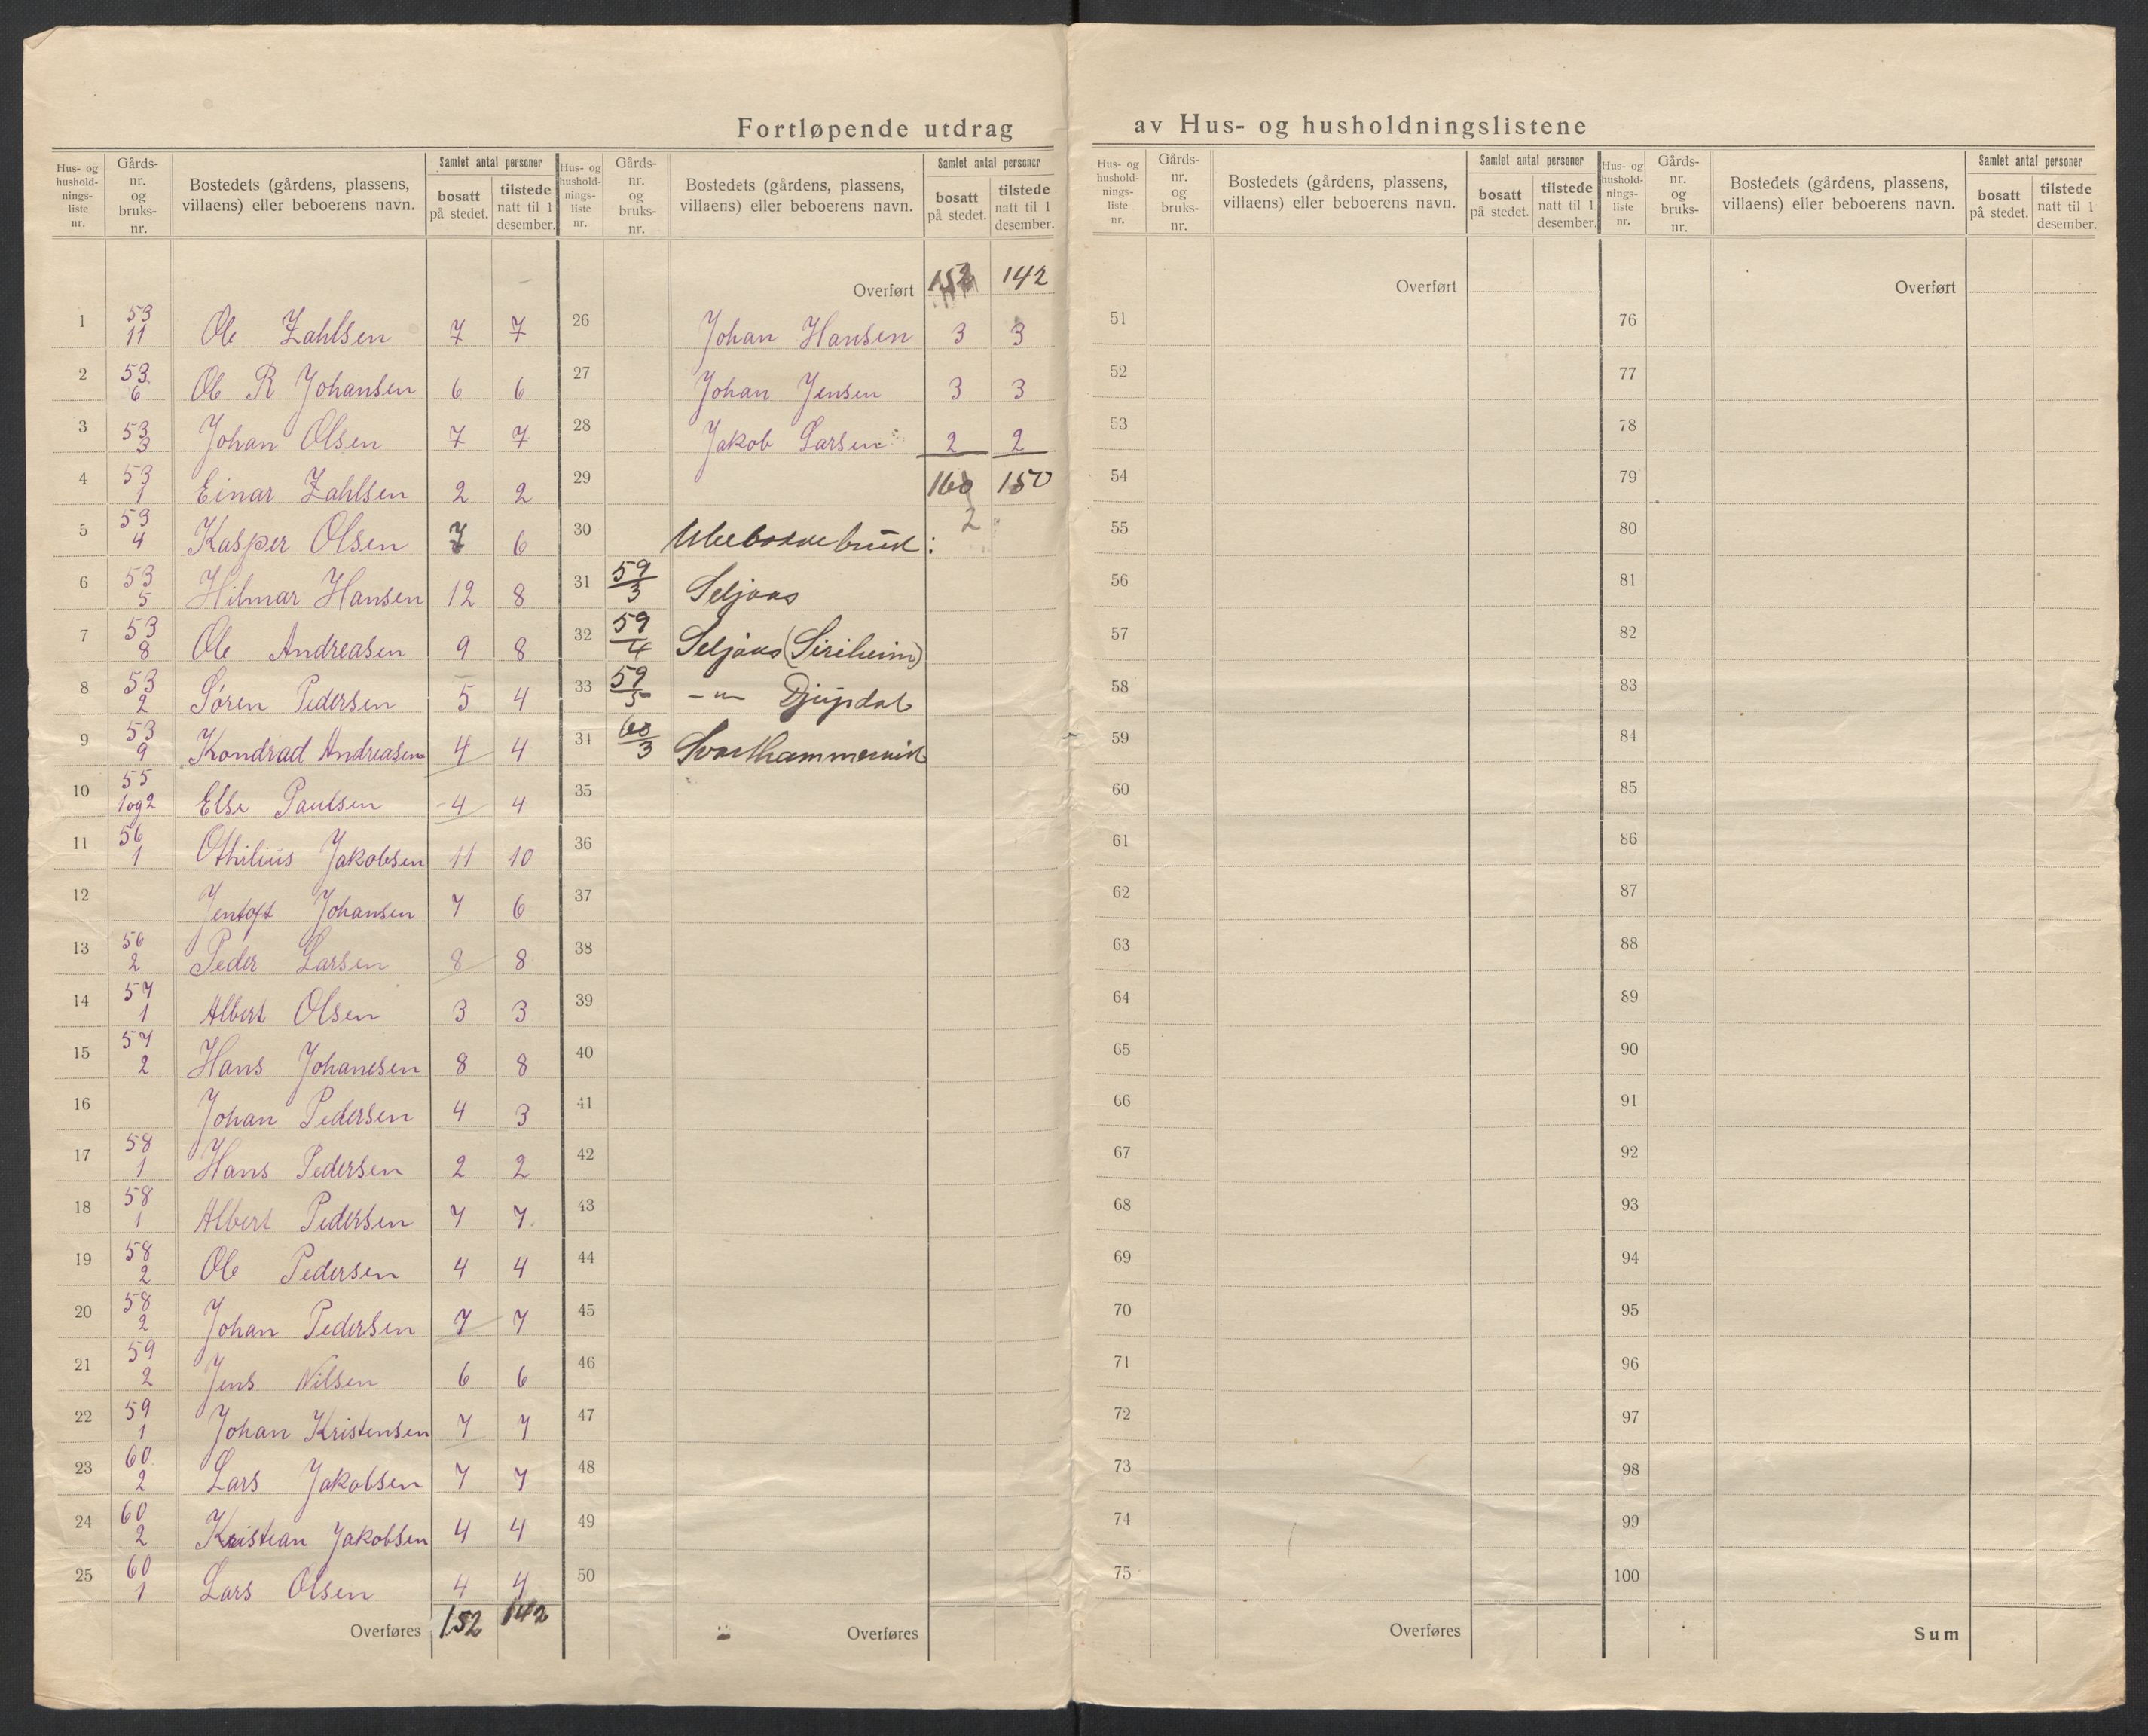 Fortløpende utdrag av Hus- og husholdningslistene
Hus- og husholdnings-liste nr. Gårds-nr. og bruks-nr. Bostedets (gårdens, plassens, villaens) eller beboerens navn. Samlet antal personer bosatt på stedet. tilstede natt til 1 desember.
1 53 11 Ole Zahlsen 7 7
2 53 6 Ole R Johansen 6 6
3 53 3 Johan Olsen 7 7
4 53 1 Einar Zahlsen 2 2
5 53 4 Kasper Olsen 7 6
6 53 5 Hilmar Hansen 12 8
7 53 8 Ole Andreasen 9 8
8 53 2 Søren Pedersen 5 4
9 53 9 Kondrad Andreasen 4 4
10 55 1og2 Else Paulsen 4 4
11 56 1 Othilius Jakobsen 11 10
12 Jentoft Johansen 7 6
13 56 2 Peder Larsen 8 8
14 57 1 Albert Olsen 3 3
15 57 2 Hans Johansen 8 8
16 Johan Pedersen 4 3
17 58 1 Hans Pedersen 2 2
18 58 1 Albert Pedersen 7 7
19 58 2 Ole Pedersen 4 4
20 58 2 Johan Pedersen 7 7
21 59 2 Jens Nilsen 6 6
22 59 1 Johan Kristensen 7 7
23 60 2 Lars Jakobsen 7 7
24 60 2 Kristian Jakobsen 4 4
25 60 1 Lars Olsen 4 4
Overføres 152 142
Hus- og husholdnings-liste nr. Gårds-nr. og bruks-nr. Bostedets (gårdens, plassens, villaens) eller beboerens navn. Samlet antal personer bosatt på stedet. tilstede natt til 1 desember.
Overført 152 142
26 Johan Hansen 3 3
27 Johan Jensen 3 3
28 Jakob Larsen 2 2
29 160 150
2
30 Ubebodde bruk:
31 59/3 Seljaas
32 59/4 Seljaas (Siriheim)
33 59/5 -"- Djupdal
34 60/3 Svarthammervik
35
36
37
38
39
40
41
42
43
44
45
46
47
48
49
50
Overføres
Hus- og husholdnings-liste nr. Gårds-nr. og bruks-nr. Bostedets (gårdens, plassens, villaens) eller beboerens navn. Samlet antal personer bosatt på stedet. tilstede natt til 1 desember.
Overført
51
52
53
54
55
56
57
58
59
60
61
62
63
64
65
66
67
68
69
70
71
72
73
74
75
Overføres
Hus- og husholdnings-liste nr. Gårds-nr. og bruks-nr. Bostedets (gårdens, plassens, villaens) eller beboerens navn. Samlet antal personer bosatt på stedet. tilstede natt til 1 desember.
Overført
76
77
78
79
80
81
82
83
84
85
86
87
88
89
90
91
92
93
94
95
96
97
98
99
100
Sum